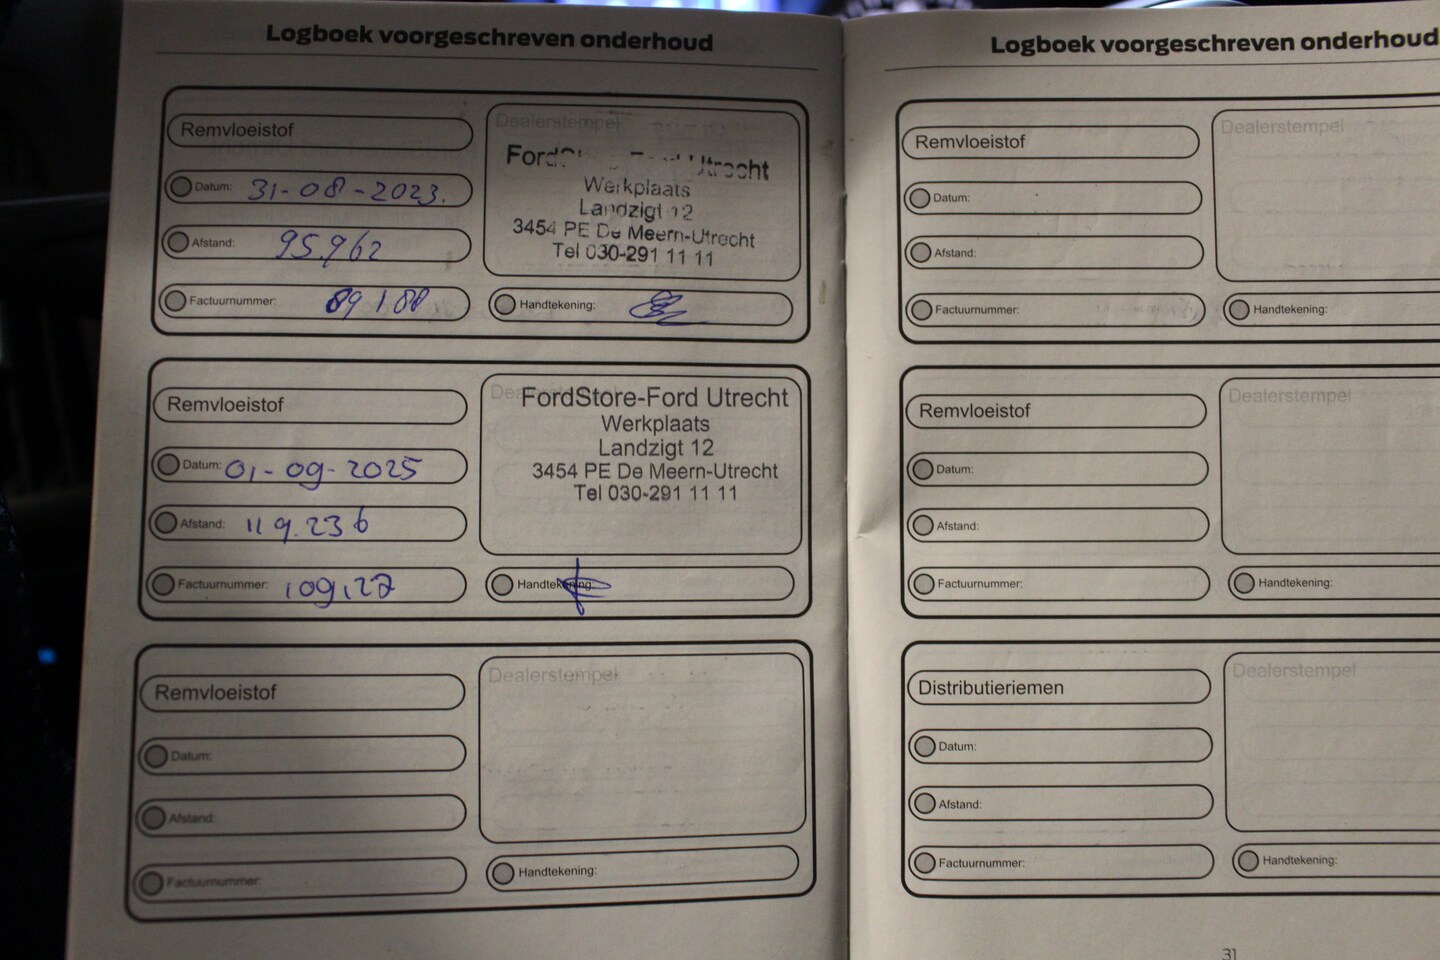 Logboek voorgeschreven onderhoud
Remvloeistof
Datum: 31-08-2023.
Afstand: 95.962
Factuurnummer: 89188
Dealerstempel
Ford Utrecht
Werkplaats
Landzigt 12
3454 PE De Meern-Utrecht
Tel 030-291 11 11
Handtekening:
Remvloeistof
Datum: 01-09-2025
Afstand: 119.236
Factuurnummer: 109127
FordStore-Ford Utrecht
Werkplaats
Landzigt 12
3454 PE De Meern-Utrecht
Tel 030-291 11 11
Handtekening:
Remvloeistof
Datum:
Afstand:
Factuurnummer:
Dealerstempel
Handtekening:
Logboek voorgeschreven onderhoud
Remvloeistof
Datum:
Afstand:
Factuurnummer:
Dealerstempel
Handtekening:
Remvloeistof
Datum:
Afstand:
Factuurnummer:
Dealerstempel
Handtekening:
Distributieriemen
Datum:
Afstand:
Factuurnummer:
Dealerstempel
Handtekening:
31